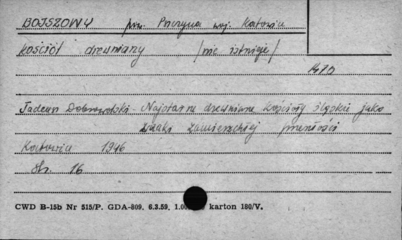 BOJSZOWY pow. Pszczyna woj. Katowice
kościół drewniany (nie istnieje)
Tadeusz Dobrowolski - Najstarsze drewniane kościoły śląskie jako
znaki zamierzchłej przeszłości
Katowice 1946
str. 16
CWD B-15b Nr 515/P. GDA-809. 6.3.59. 1.00 karton 180/V.